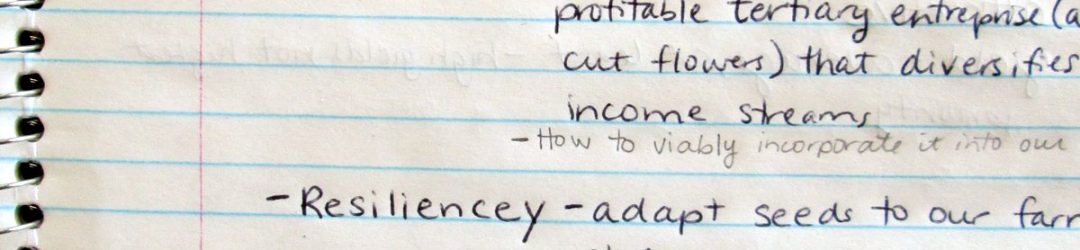 profitable tertiary entreprise (a
cut flowers) that diversifies
income streams
- How to viably incorporate it into our
- Resiliencey - adapt seeds to our farr